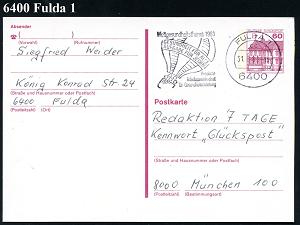 6400 Fulda 1
Absender
(Vorwahl) (Rufnummer)
Siegfried Weider
(Vorname) (Name)
König Konrad Str 24
(Straße und Hausnummer oder Postfach)
6400 Fulda
(Postleitzahl) (Ort)
Weltgesundheitstag 1985
FULDA
6400
60
Postkarte
Redaktion 7 TAGE
Kennwort "Glückspost"
(Straße und Hausnummer oder Postfach)
8000 München 100
(Postleitzahl) (Bestimmungsort)